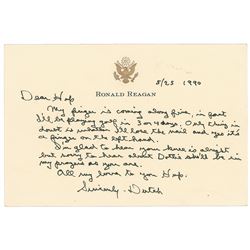 RONALD REAGAN
5/25 1990
Dear Hap
My finger is coming along fine, in fact
I'll be playing golf in 3 or 4 days. Only thing in
doubt is whether I'll lose the nail and yes it's
a finger on the left hand.
I'm glad to hear your knee is alright
but sorry to hear about Dottie she'll be in
my prayers as you are.
All my love to you Hap.
Sincerely - Dutch